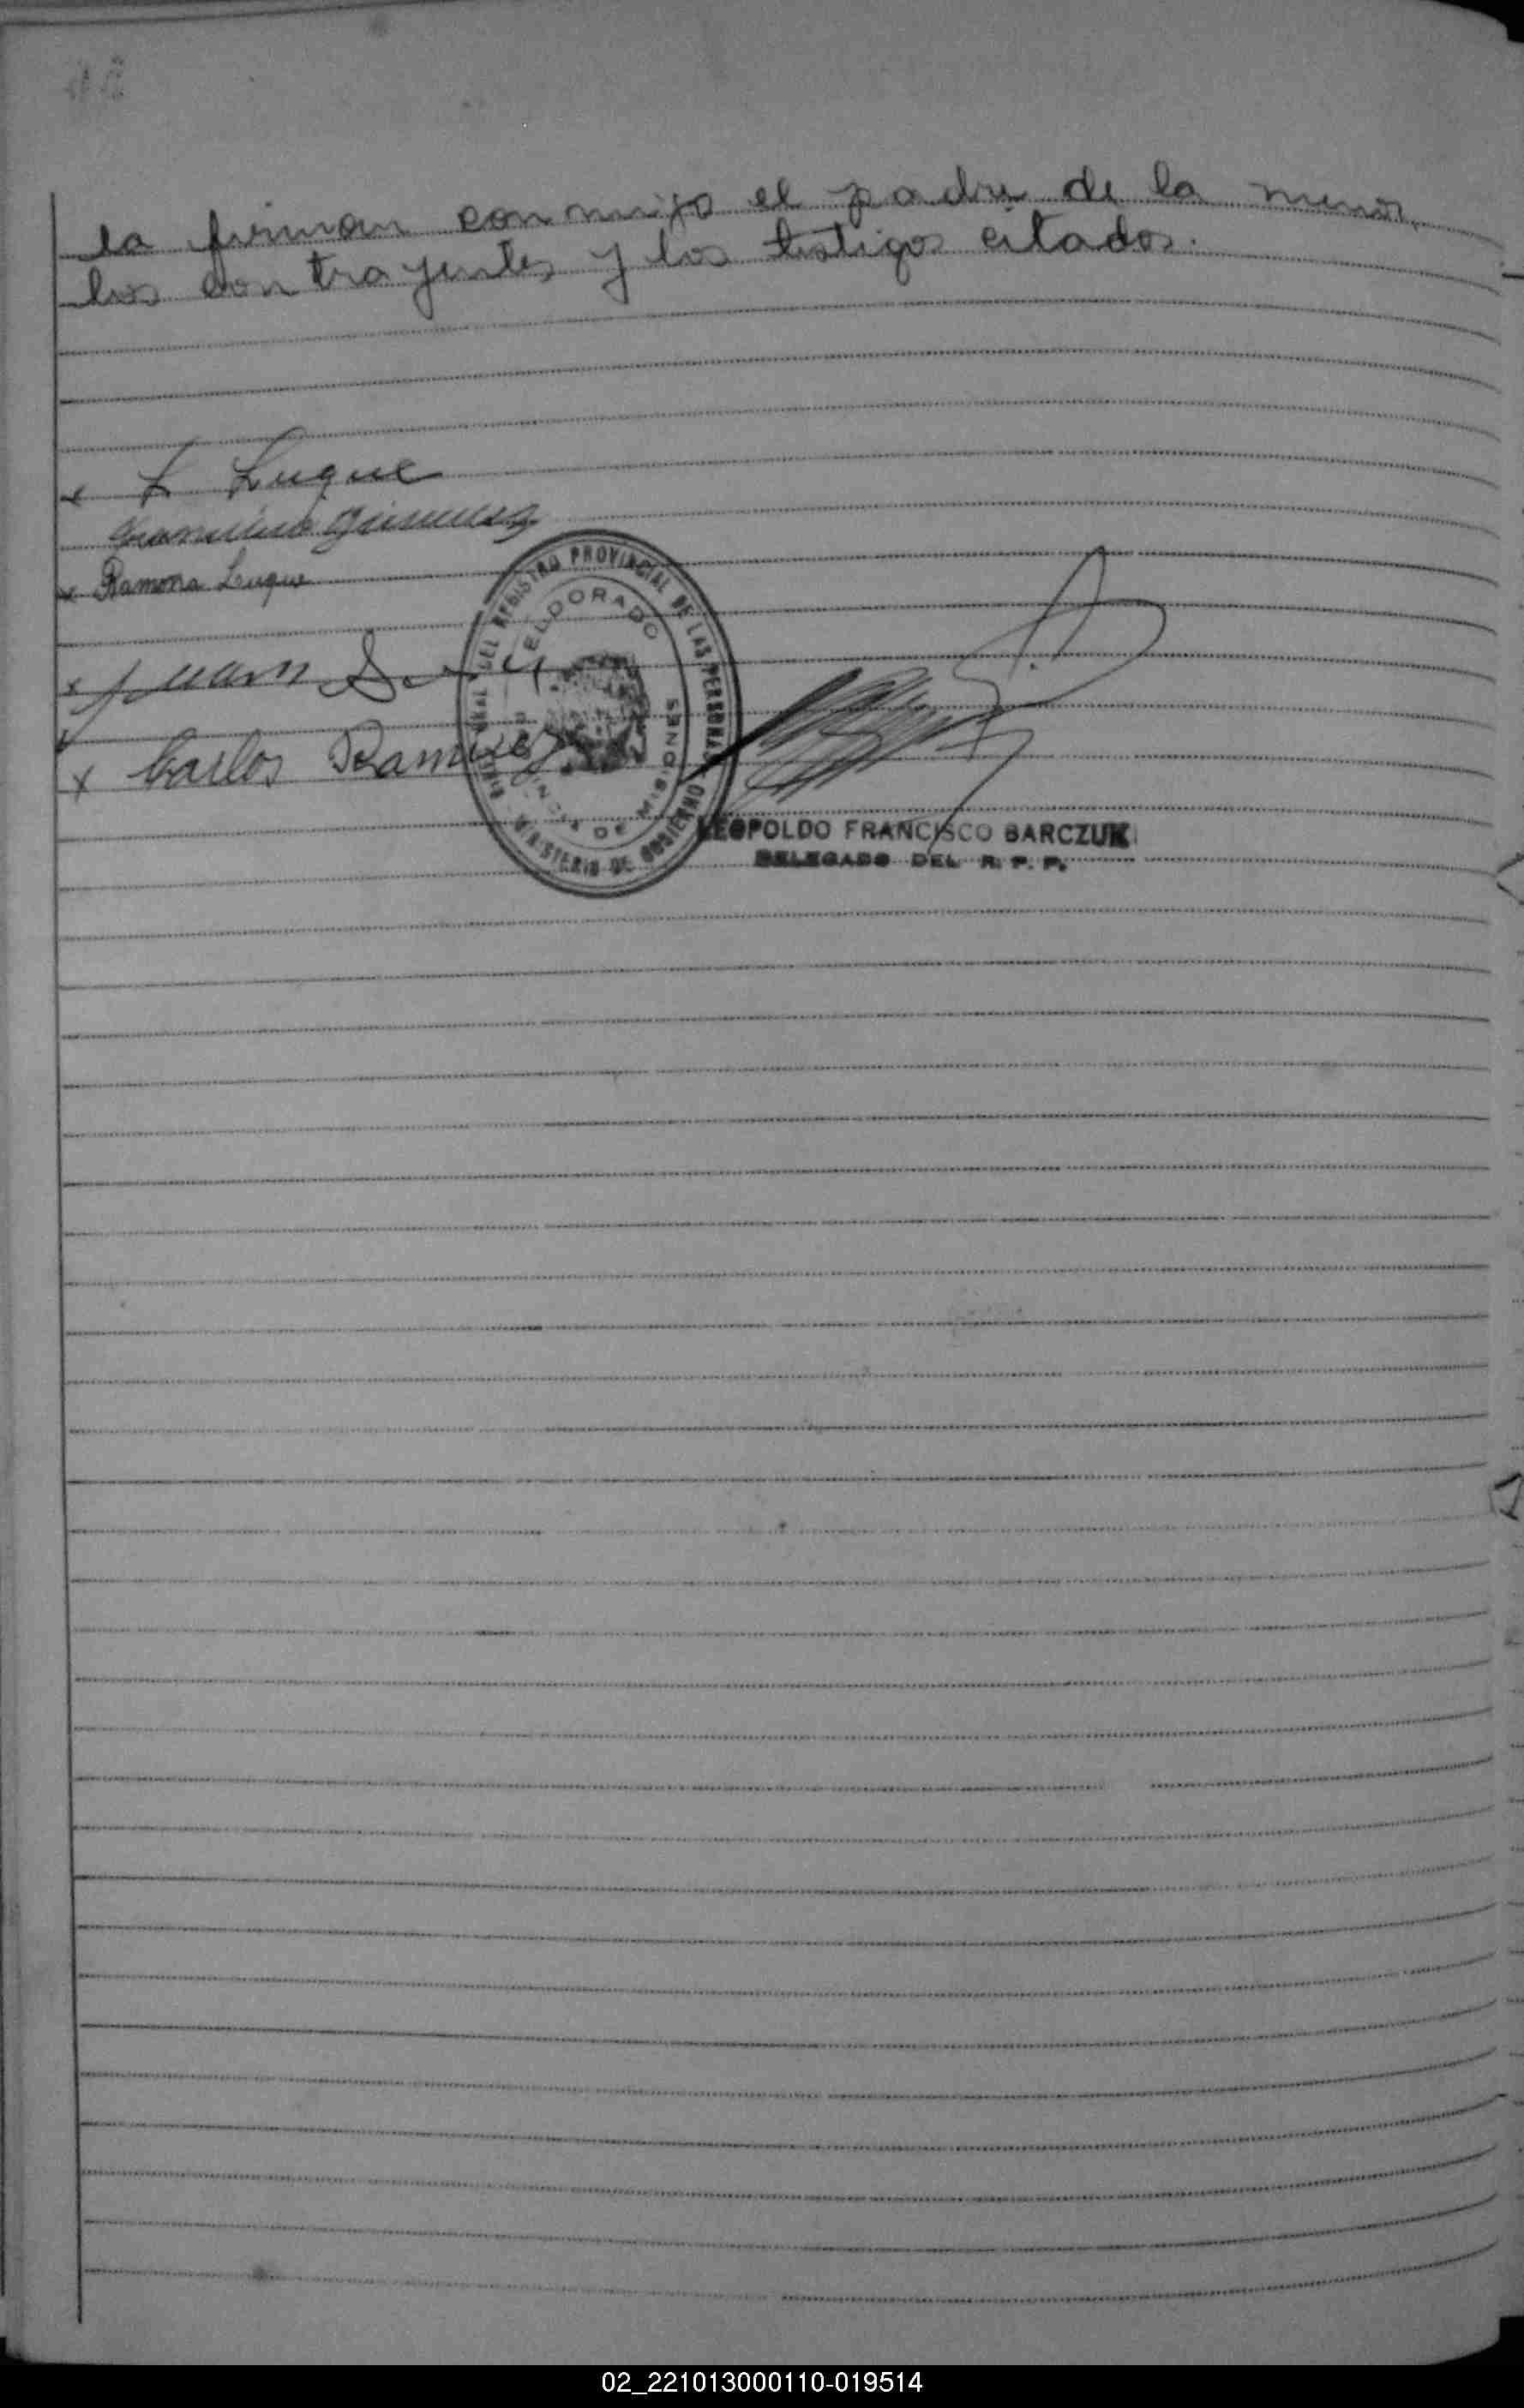 la firman conmigo el padre de la menor,
los contrayentes y los testigos citados.
x L Luque
Gimenez
x Ramona Luque
x Juan
x Carlos Ramirez
DEL REGISTRO PROVINCIAL DE LAS PERSONAS
MINISTERIO DE GOBIERNO
ELDORADO
PROVINCIA DE MISIONES
LEOPOLDO FRANCISCO BARCZUK
DELEGADO DEL R. P. P.
02_221013000110-019514